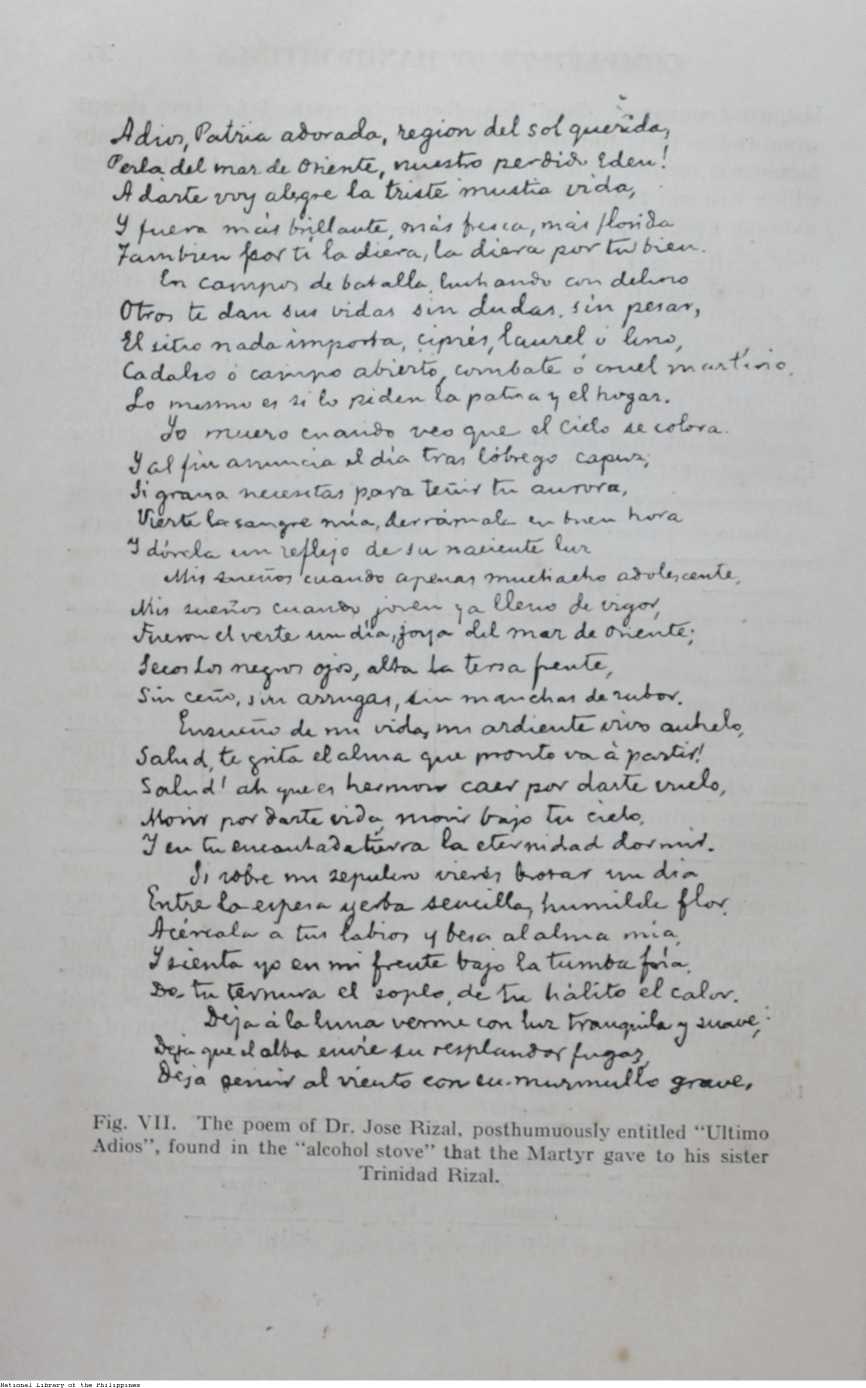 Adios, Patria adorada, region del sol querida,
Perla del mar de Oriente, nuestro perdido Eden!
A darte voy alegre la triste mustia vida,
Y fuera más brillante, más fresca, más florida
Tambien por tí la diera, la diera por tu bien.
En campos de batalla, luchando con delirio
Otros te dan sus vidas sin dudas, sin pesar,
El sitio nada importa, ciprés, laurel ó lirio,
Cadalso ó campo abierto, combate ó cruel martirio,
Lo mismo es si lo piden la patria y el hogar.
Yo muero cuando veo que el cielo se colora
Y al fin anuncia el día tras lóbrego capuz;
Si grana necesitas para teñir tu aurora,
Vierte la sangre mía, derrámala en buen hora
Y dórela un reflejo de su naciente luz
Mis sueños cuando apenas muchacho adolescente,
Mis sueños cuando joven ya lleno de vigor,
Fueron el verte un día, joya del mar de Oriente;
Secos los negros ojos, alta la tersa frente,
Sin ceño, sin arrugas, sin manchas de rubor.
Ensueño de mi vida, mi ardiente vivo anhelo,
Salud, te grita el alma que pronto va à partir!
Salud! ah que es hermoso caer por darte vuelo,
Morir por darte vida, morir bajo tu cielo,
Y en tu encantada tierra la eternidad dormir.
Si sobre mi sepulcro vieres brotar un dia
Entre la espesa yerba sencilla, humilde flor,
Acércala a tus labios y besa al alma mía,
Y sienta yo en mi frente bajo la tumba fría,
De tu ternura el soplo, de tu hálito el calor.
Deja á la luna verme con luz tranquila y suave,
Deja que el alba envíe su resplandor fugaz,
Deja gemir al viento con su murmullo grave,
Fig. VII. The poem of Dr. Jose Rizal, posthumuously entitled "Ultimo
Adios", found in the "alcohol stove" that the Martyr gave to his sister
Trinidad Rizal.
National Library of the Philippines